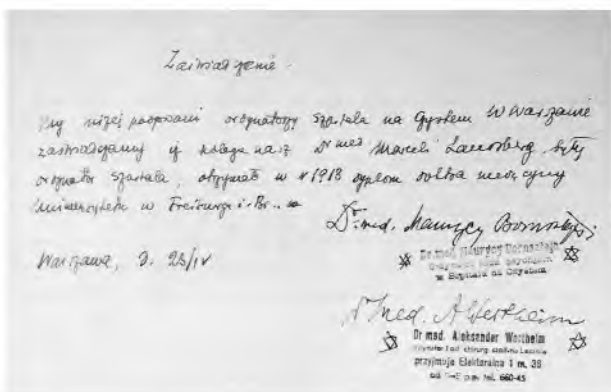 Zaświadczenie.
My niżej podpisani ordynatorzy Szpitala na Czystem w Warszawie
zaświadczamy iż kolega nasz Dr med Marceli Landsberg, były
ordynator Szpitala, otrzymał w r 1913 dyplom doktora medycyny
Uniwersytetu w Freiburg i. Br.
Dr. med. Maurycy Bornsztajn
Warszawa, d. 23/IV
Dr. med. Maurycy Bornsztajn
w Szpitalu na Czystem
Dr Med. A Wertheim
Dr med. Aleksander Wertheim
przyjmuje Elektoralna 1 m. 36
tel. 660-45